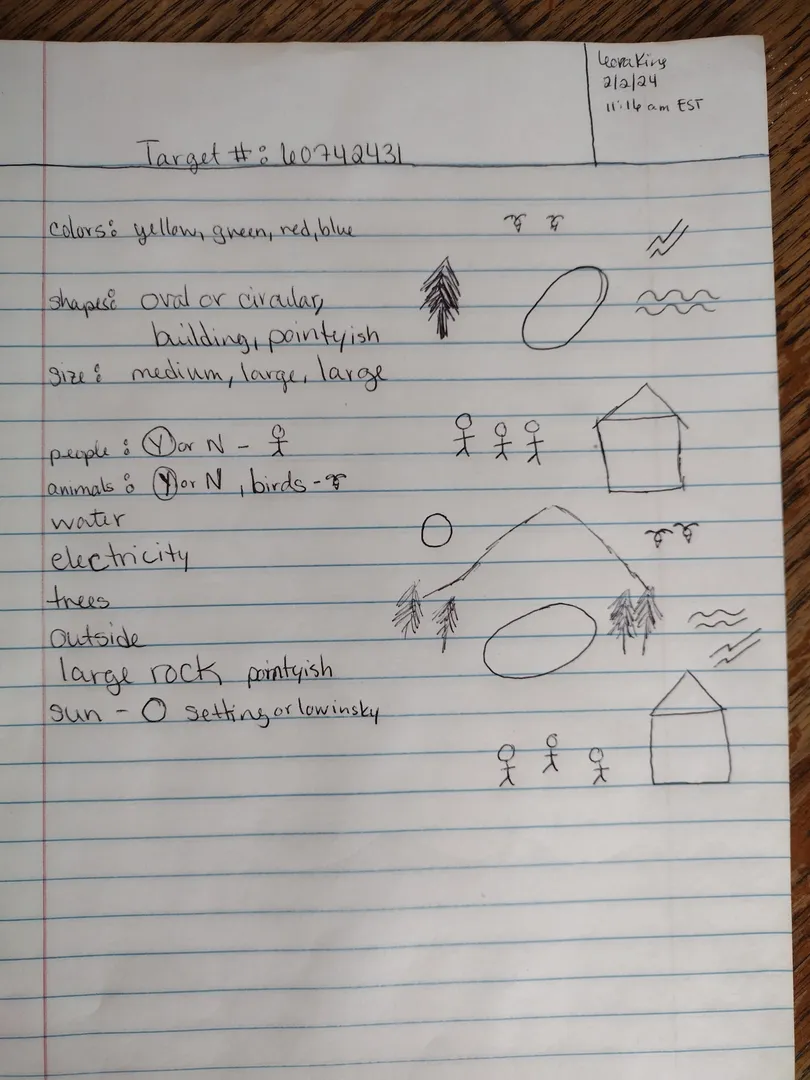 Leora King
2/2/24
11:16 am EST
Target #: 60742431
colors: yellow, green, red, blue
shapes: oval or circular,
building, pointyish
size: medium, large, large
people: Y or N -
animals: Y or N, birds -
water
electricity
trees
outside
large rock pointyish
sun - O setting or low in sky